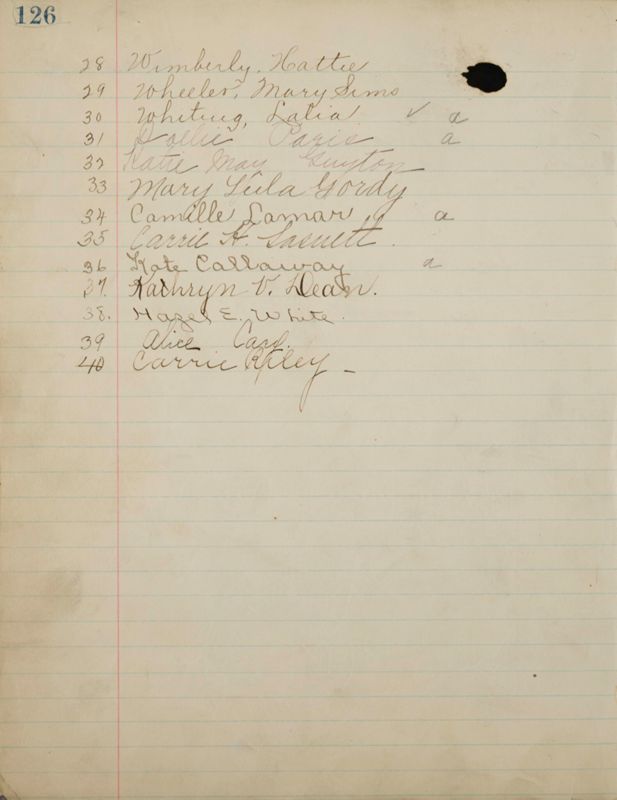 126
28 Wimberly, Hattie
29 Wheeler, Mary Sims
30 Whiting, Lalia ✓ a
31 Dollie Paris a
32 Katie May Guyton
33 Mary Lula Gordy
34 Camille Lamar a
35 Carrie H. Sasnett.
36 Kate Callaway a
37. Kathryn V. Dean.
38. Hazel E. White.
39 Alice Card.
40 Carrie Riley _